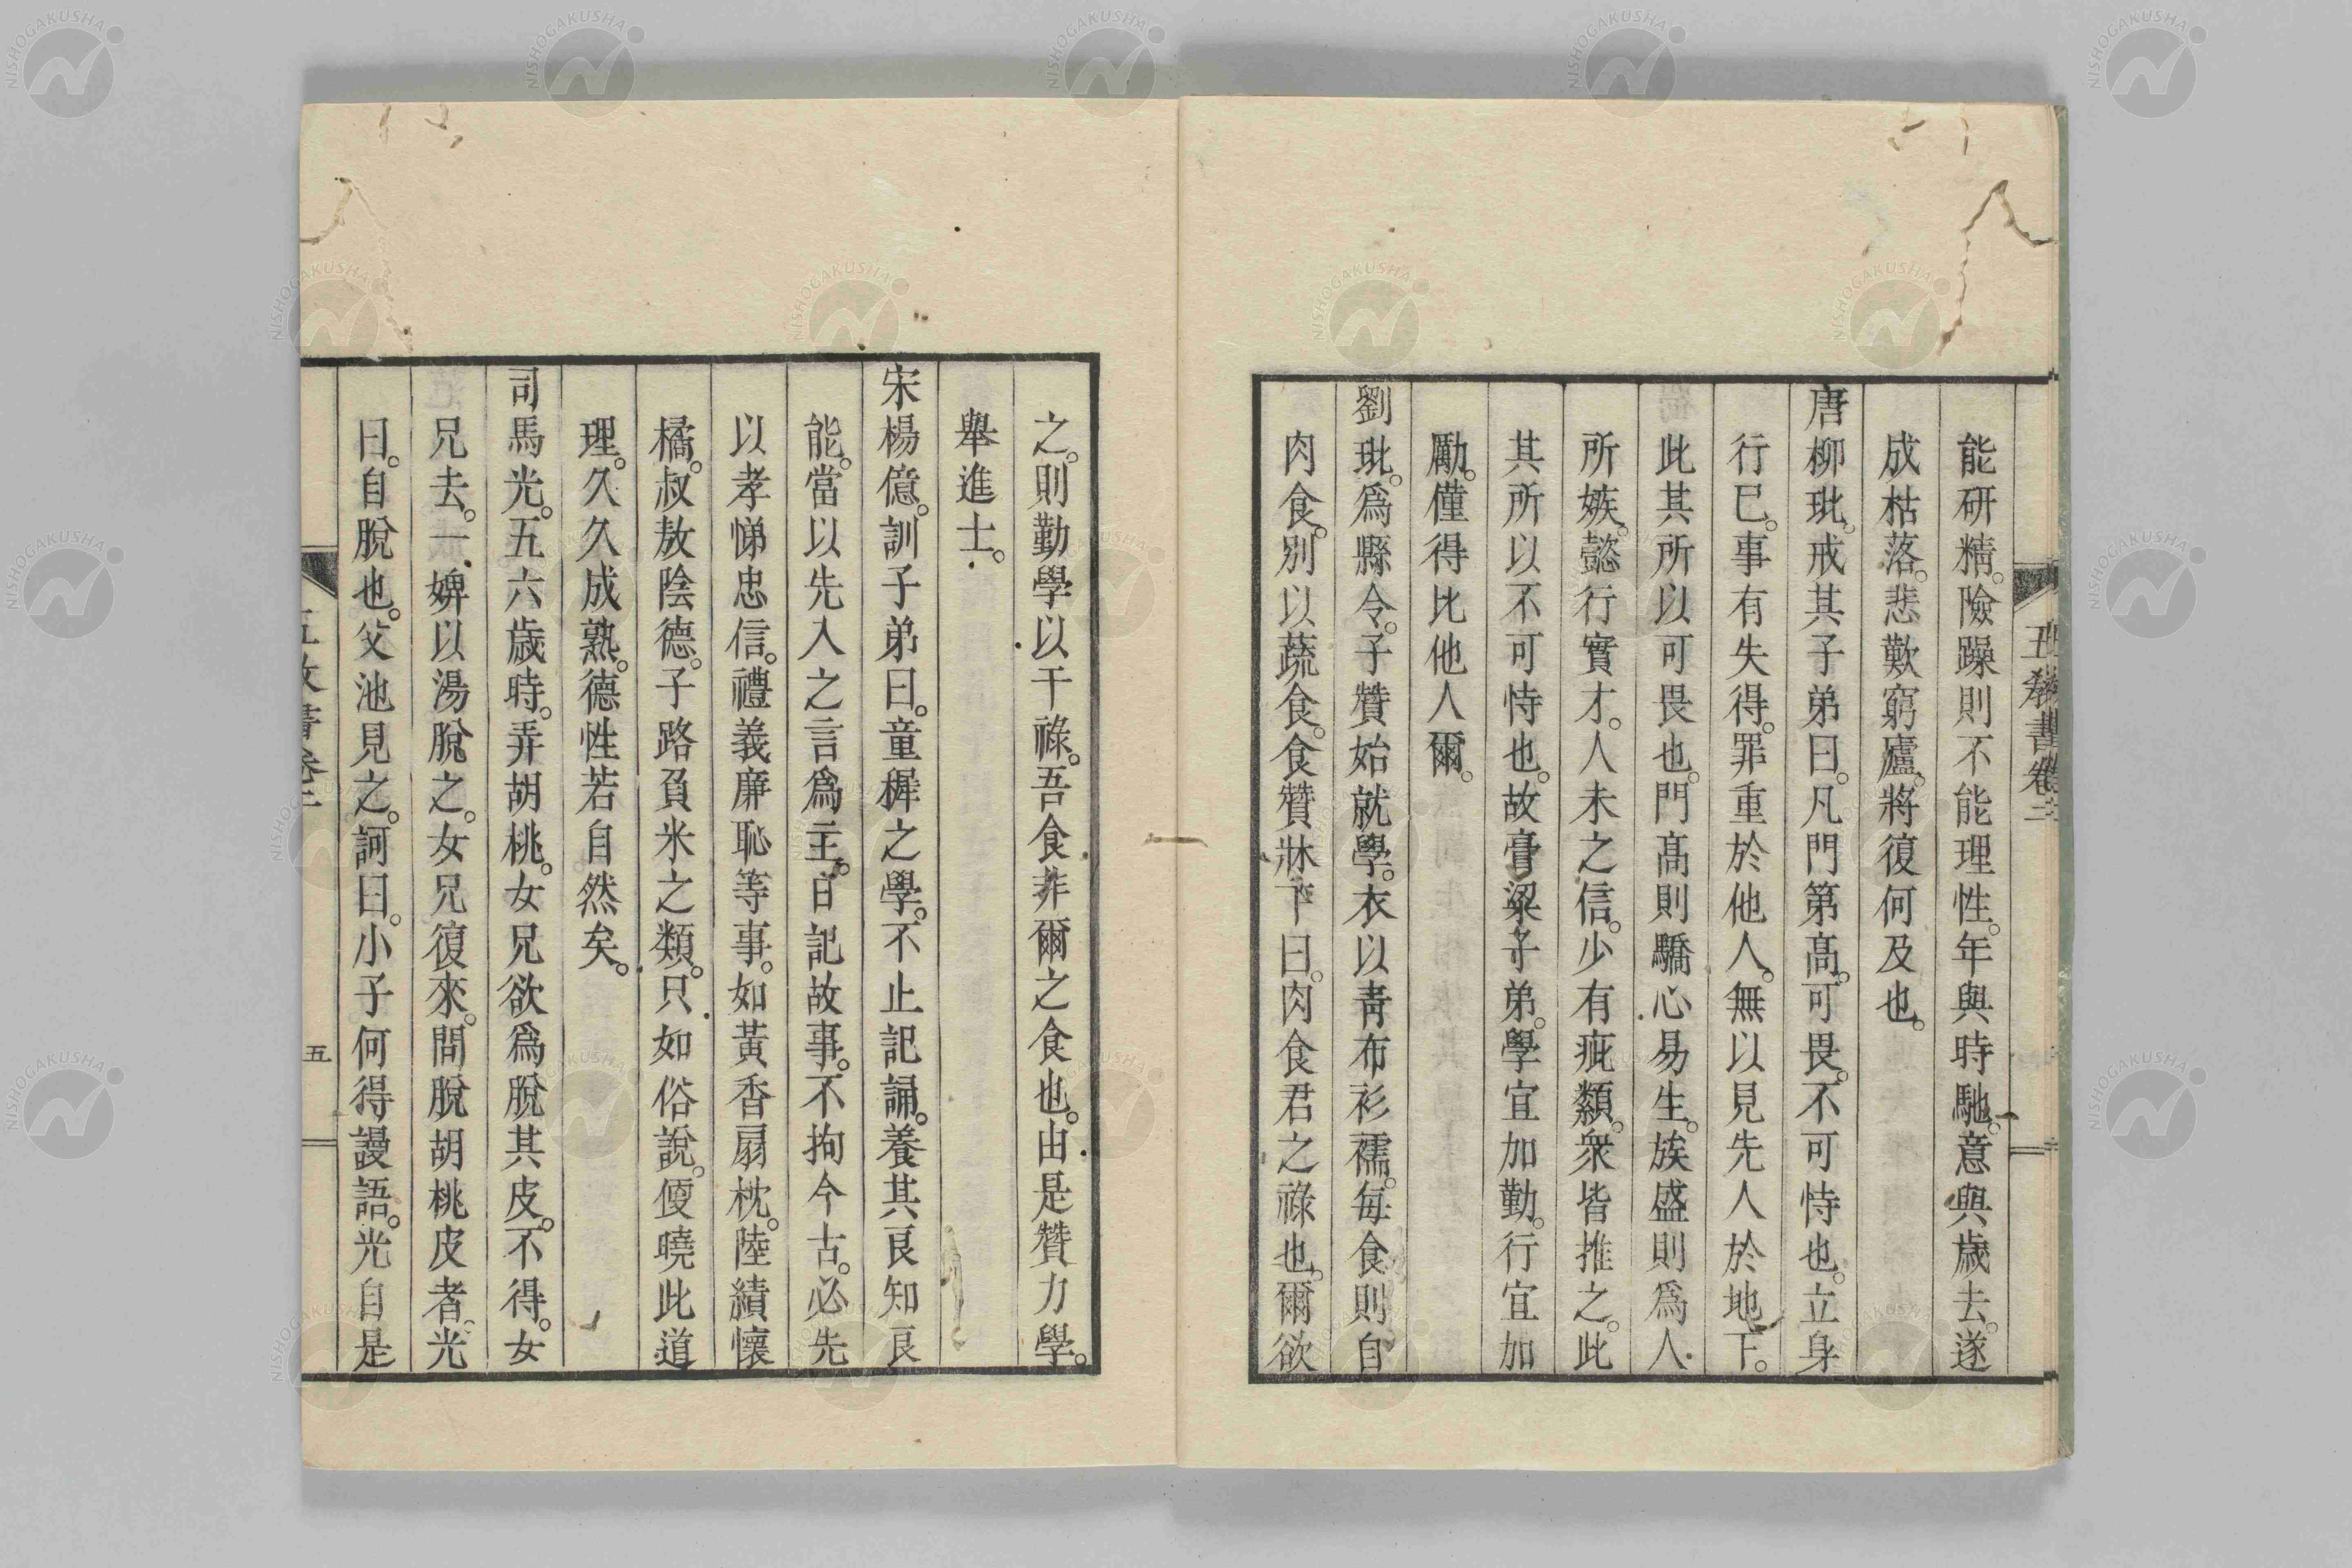 五教書卷三
能研精。險躁則不能理性。年與時馳。意與歲去。遂
成枯落。悲歎窮廬。將復何及也。
唐柳玭。戒其子弟曰。凡門第高。可畏。不可恃也。立身
行已。事有失得。罪重於他人。無以見先人於地下。
此其所以可畏也。門高則驕心易生。族盛則爲人
所嫉。懿行實才。人未之信。少有疵纇。衆皆推之。此
其所以不可恃也。故膏粱子弟。學宜加勤。行宜加
勵。僅得比他人爾。
劉玭。爲縣令。子贊始就學。衣以靑布衫襦。每食則自
肉食。別以蔬食。食贊牀下曰。肉食君之祿也。爾欲
之。則勤學以干祿。吾食非爾之食也。由是贊力學。
舉進士。
宋楊億。訓子弟曰。童穉之學。不止記誦。養其良知良
能。當以先入之言爲主。日記故事。不拘今古。必先
以孝悌忠信。禮義廉恥等事。如黃香扇枕。陸績懷
橘。叔敖陰德。子路負米之類。只如俗說。便曉此道
理。久久成熟。德性若自然矣。
司馬光。五六歲時。弄胡桃。女兄欲爲脫其皮。不得。女
兄去。一婢以湯脫之。女兄復來。問脫胡桃皮者。光
曰。自脫也。父池見之。訶曰。小子何得謾語。光自是
五
NISHOGAKUSHA